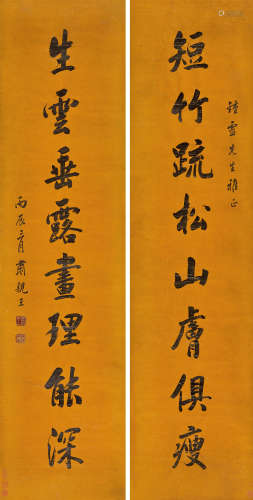 鐘雪先生雅正
短竹疏松山膚俱瘦
生雲垂露畫理能深
丙辰二月肅親王